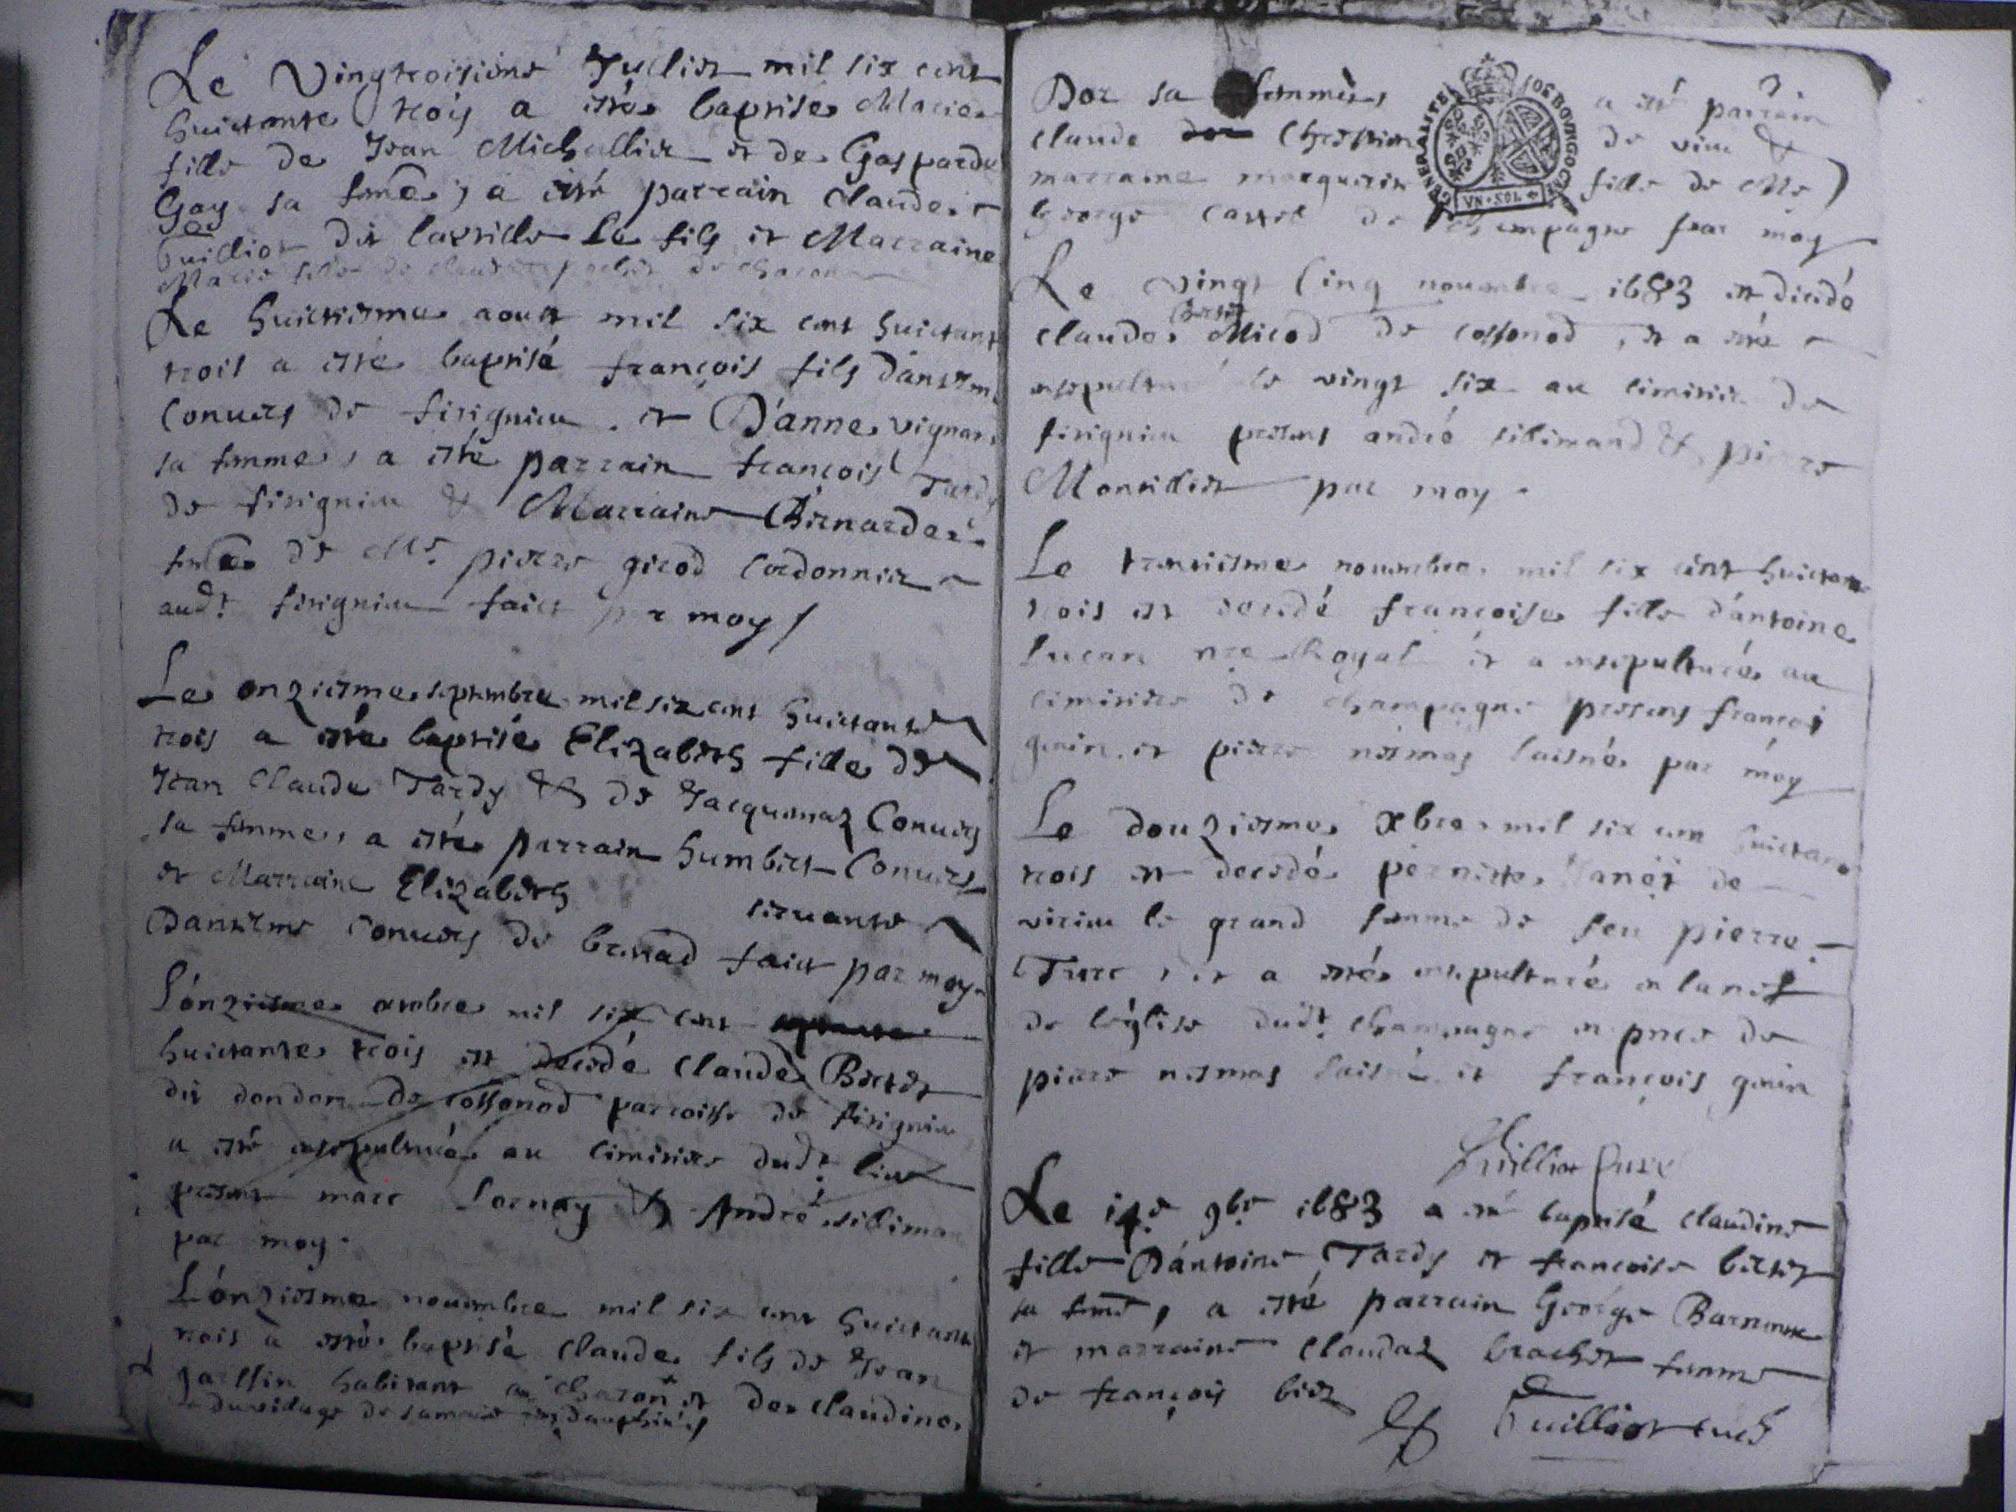 Le Vingtroisieme Juillet mil six cent
huictante trois a esté baptisée Marie
fille de Jean Michallier et de Gasparde
Goy sa feme, a esté parrain Claude
Guilliot dit laville le fils et Marraine
Marie fille de Claude de
Le huictiesme aoust mil six cent huictante
trois a esté baptisé françois fils Danthelme
Convers de fitignieu et D'anne vignan
sa femme, a esté parrain françois Tardy
de fitignieu & Marraine Bernarde
feme de Me. pierre girod Cordonnier
audt. fitignieu faict par moy
Le onziesme septembre mil six cent huictante
trois a esté baptisée Elizabeth fille de
Jean Claude Tardy & de Jacquemaz Convers
sa femme, a esté parrain humbert Convers
et Marraine Elizabeth servante
Danthelme Convers de brenod faict par moy
L'onziesme octobre mil six cent
huictante trois est decedé Claude Bertet
dit dondon de cossonod parroisse de fitignieu
a esté ensepulturé au cimitiere dudt. lieu
present marc Lornay & André silliman
par moy.
L'onziesme novembre mil six cent huictante
trois à esté baptisé Claude fils de Jean
Jallfin habitant au charon et de Claudine
Dor sa femme, a esté parrain
Claude Chrestien de vieu &
marraine marguerite fille de Me
George Carrel de Champagne par moy
GENERALITE DE BOURGOGNE
VN SOL 4
Le vingt cinq novembre 1683 est decedé
Claude Bertet Micod de cossonod, et a esté
ensepulturé le vingt six au cimitiere de
fitignieu presens andré sillimand & pierre
Montillier par moy.
Le trentiesme novembre mil six cent huictante
trois est decedé françoise fille d'antoine
Lucan nre Royal et a ensepulturée au
cimitiere de champagne presens françois
guin et pierre nesmoz laisné par moy
Le douziesme Xbre mil six cent huictante
trois est decedé pernette Janet de
virieu le grand femme de feu pierre
Turc, et a esté ensepulturée en lanef
de l'église dudt. Champagne en pnce de
pierre nesmoz laisné et françois guin
Guilliot Curé
Le 14e 9bre 1683 a esté baptisé Claudine
fille D'antoine Tardy et françoise bertet
sa feme, a esté parrain George Barnoux
et marraine Claudaz brachet femme
de françois biez
Guilliot curé